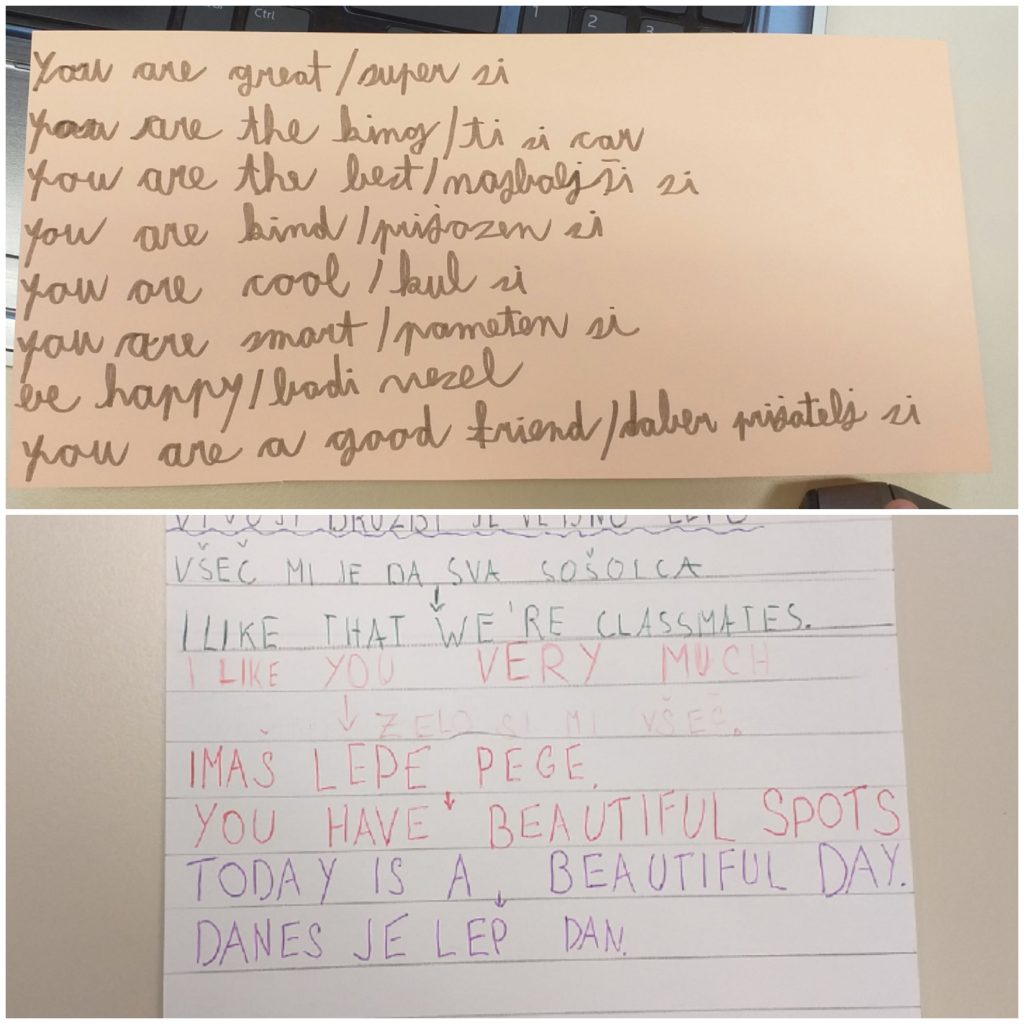 Ctrl
1
2
3
You are great/super si
you are the king/ti si car
you are the best/najboljši si
you are kind/prijazen si
you are cool/kul si
you are smart/pameten si
be happy/bodi vezel
you are a good friend/dober prijatelj si
VŠEČ MI JE DA SVA SOŠOLCA
↓
I LIKE THAT WE'RE CLASSMATES.
I LIKE YOU VERY MUCH
↓ ZELO SI MI VŠEČ.
IMAŠ LEPE PEGE.
↓
YOU HAVE BEAUTIFUL SPOTS
TODAY IS A BEAUTIFUL DAY.
↓
DANES JE LEP DAN.